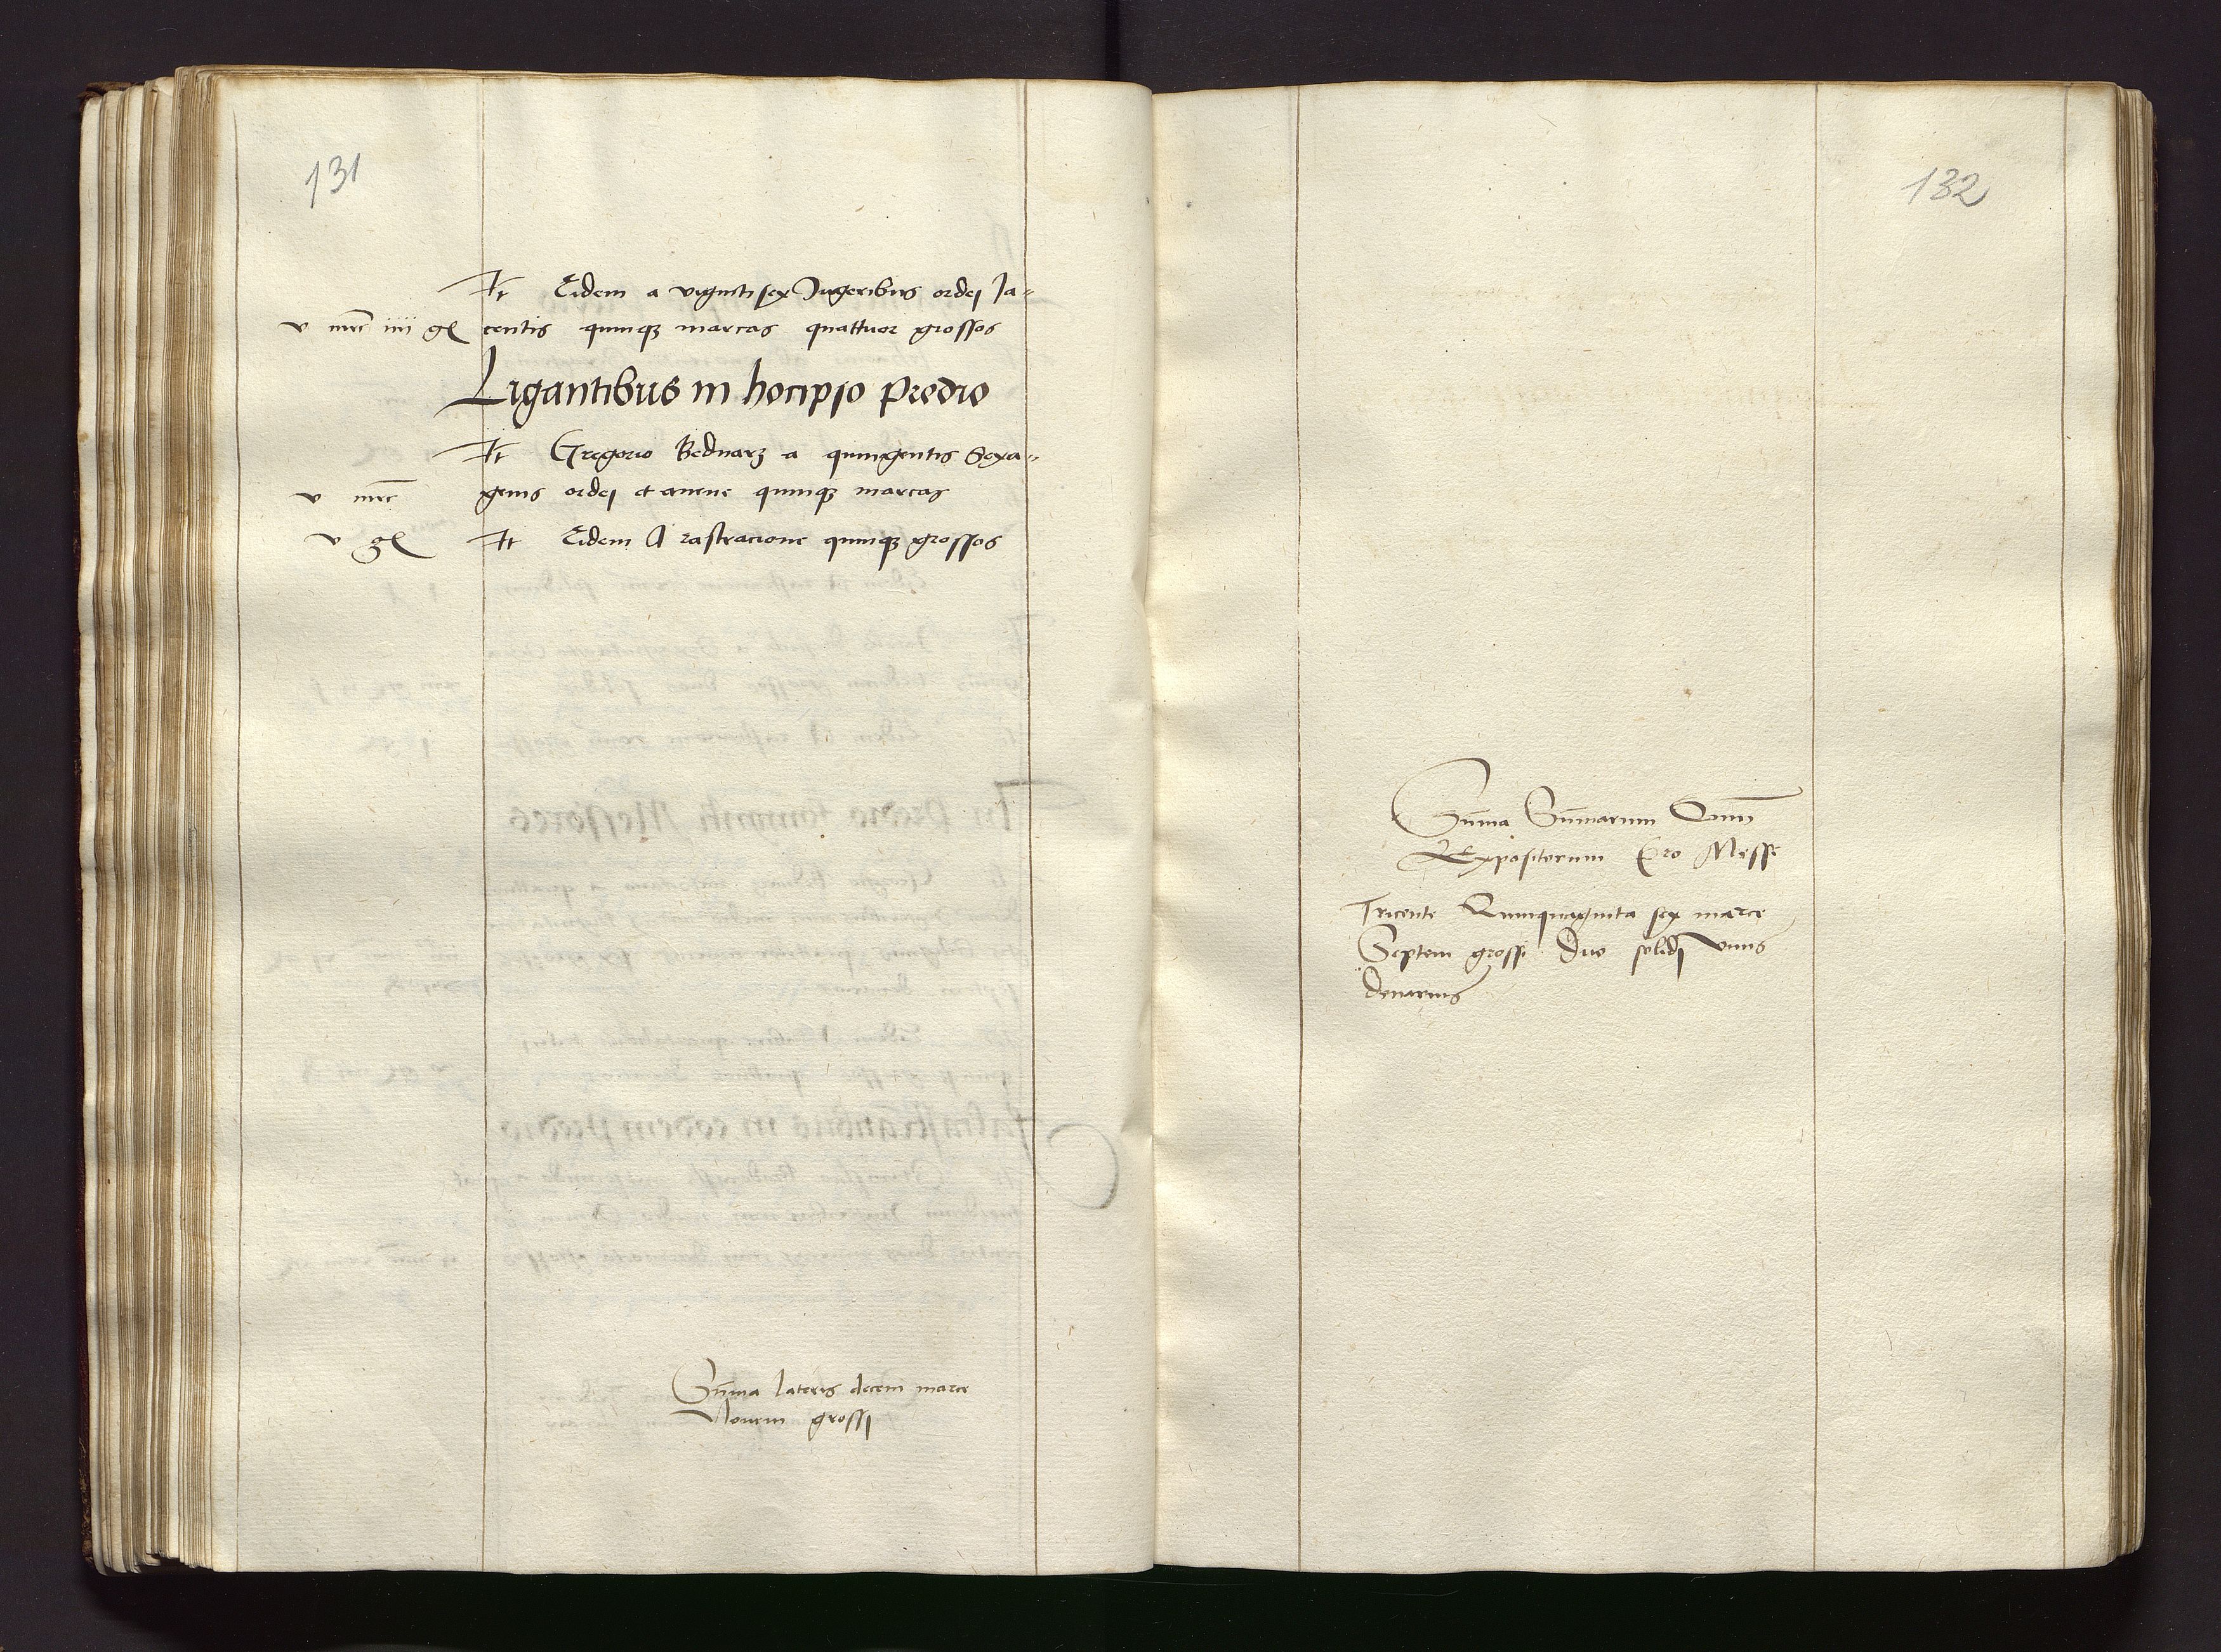 131
It Eidem a vigintisex Jugeribus ordei Ja-
v mrc iiii gl centis quinqꝫ marcas quattuor grossos
Ligantibus in hocipso predio
It Gregorio Bednarz a quingentis Sexa-
v mrc genis ordei et auene quinqꝫ marcas
v gl It Eidem A rastracione quinqꝫ grossos
Suma lateris decem marce
Nouem grossi
132
Suma Sumarum
Expositorum Pro Messe
Tricente Quinquaginta sex marce
Septem grossi Duo solidi vnus
denarius